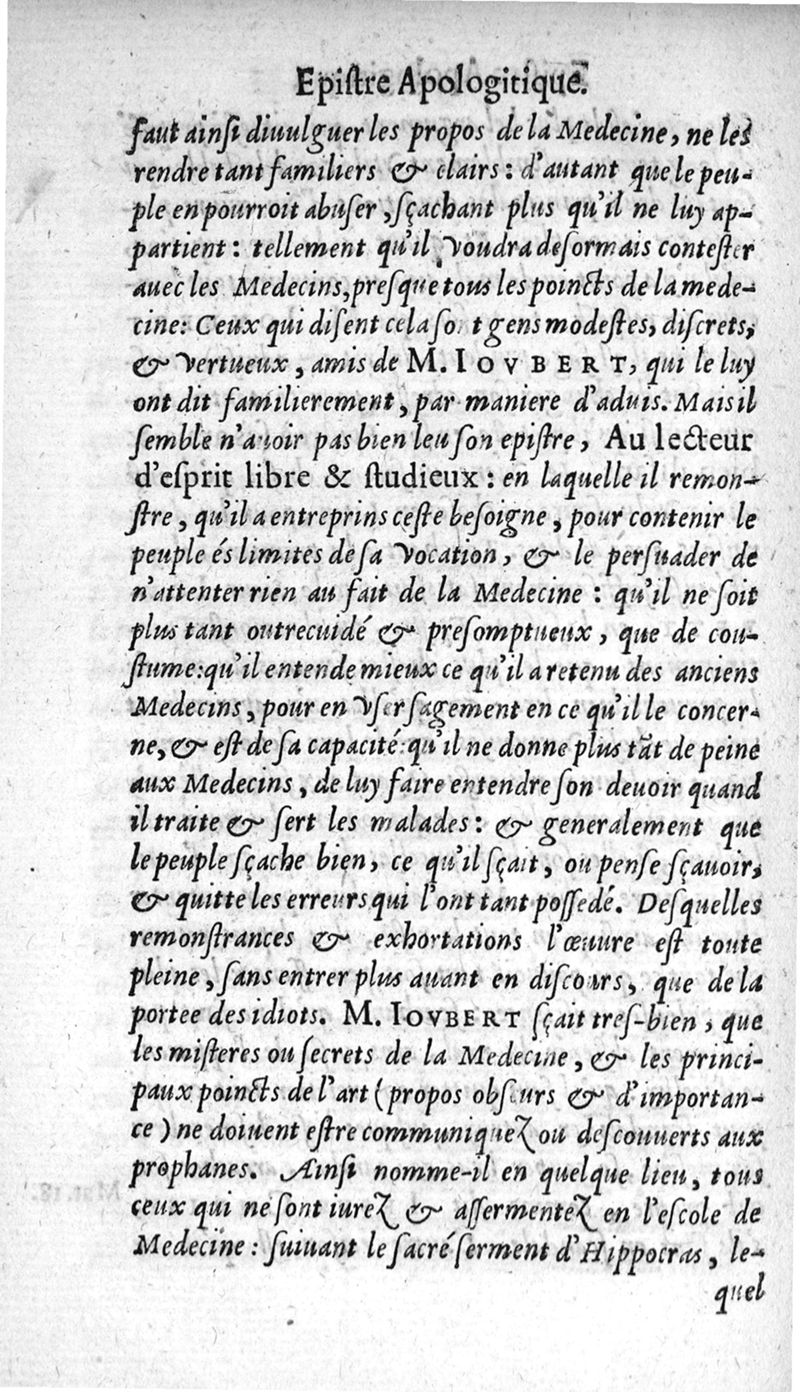 Epiſtre Apologitique.
faut ainſi diuulguer les propos de la Medecine, ne les
rendre tant familiers & clairs: d'autant que le peu-
ple en pourroit abuſer, ſçachant plus qu'il ne luy ap-
partient: tellement qu'il voudra deſormais conteſter
auec les Medecins, preſque tous les poincts de la mede-
cine: Ceux qui diſent cela ſont gens modeſtes, diſcrets,
& vertueux, amis de M. IOVBERT, qui le luy
ont dit familierement, par maniere d'aduis. Mais il
ſemble n'auoir pas bien leu ſon epiſtre, Au lecteur
d'eſprit libre & ſtudieux: en laquelle il remon-
ſtre, qu'il a entreprins ceſte beſoigne, pour contenir le
peuple és limites de ſa vocation, & le perſuader de
n'attenter rien au fait de la Medecine: qu'il ne ſoit
plus tant outrecuidé & preſomptueux, que de cou-
ſtume: qu'il entende mieux ce qu'il a retenu des anciens
Medecins, pour en vſer ſagement en ce qu'il le concer-
ne, & eſt de ſa capacité: qu'il ne donne plus tãt de peine
aux Medecins, de luy faire entendre ſon deuoir quand
il traite & ſert les malades: & generalement que
le peuple ſçache bien, ce qu'il ſçait, ou penſe ſçauoir,
& quitte les erreurs qui l'ont tant poſſedé. Deſquelles
remonſtrances & exhortations l'œuure eſt toute
pleine, ſans entrer plus auant en diſcours, que de la
portee des idiots. M. IOVBERT ſçait treſ-bien, que
les miſteres ou ſecrets de la Medecine, & les princi-
paux poincts de l'art (propos obſcurs & d'importan-
ce) ne doiuent eſtre communiquez ou deſcouuerts aux
prophanes. Ainſi nomme-il en quelque lieu, tous
ceux qui ne ſont iurez & aſſermentez en l'eſcole de
Medecine: ſuiuant le ſacré ſerment d'Hippocras, le-
quel